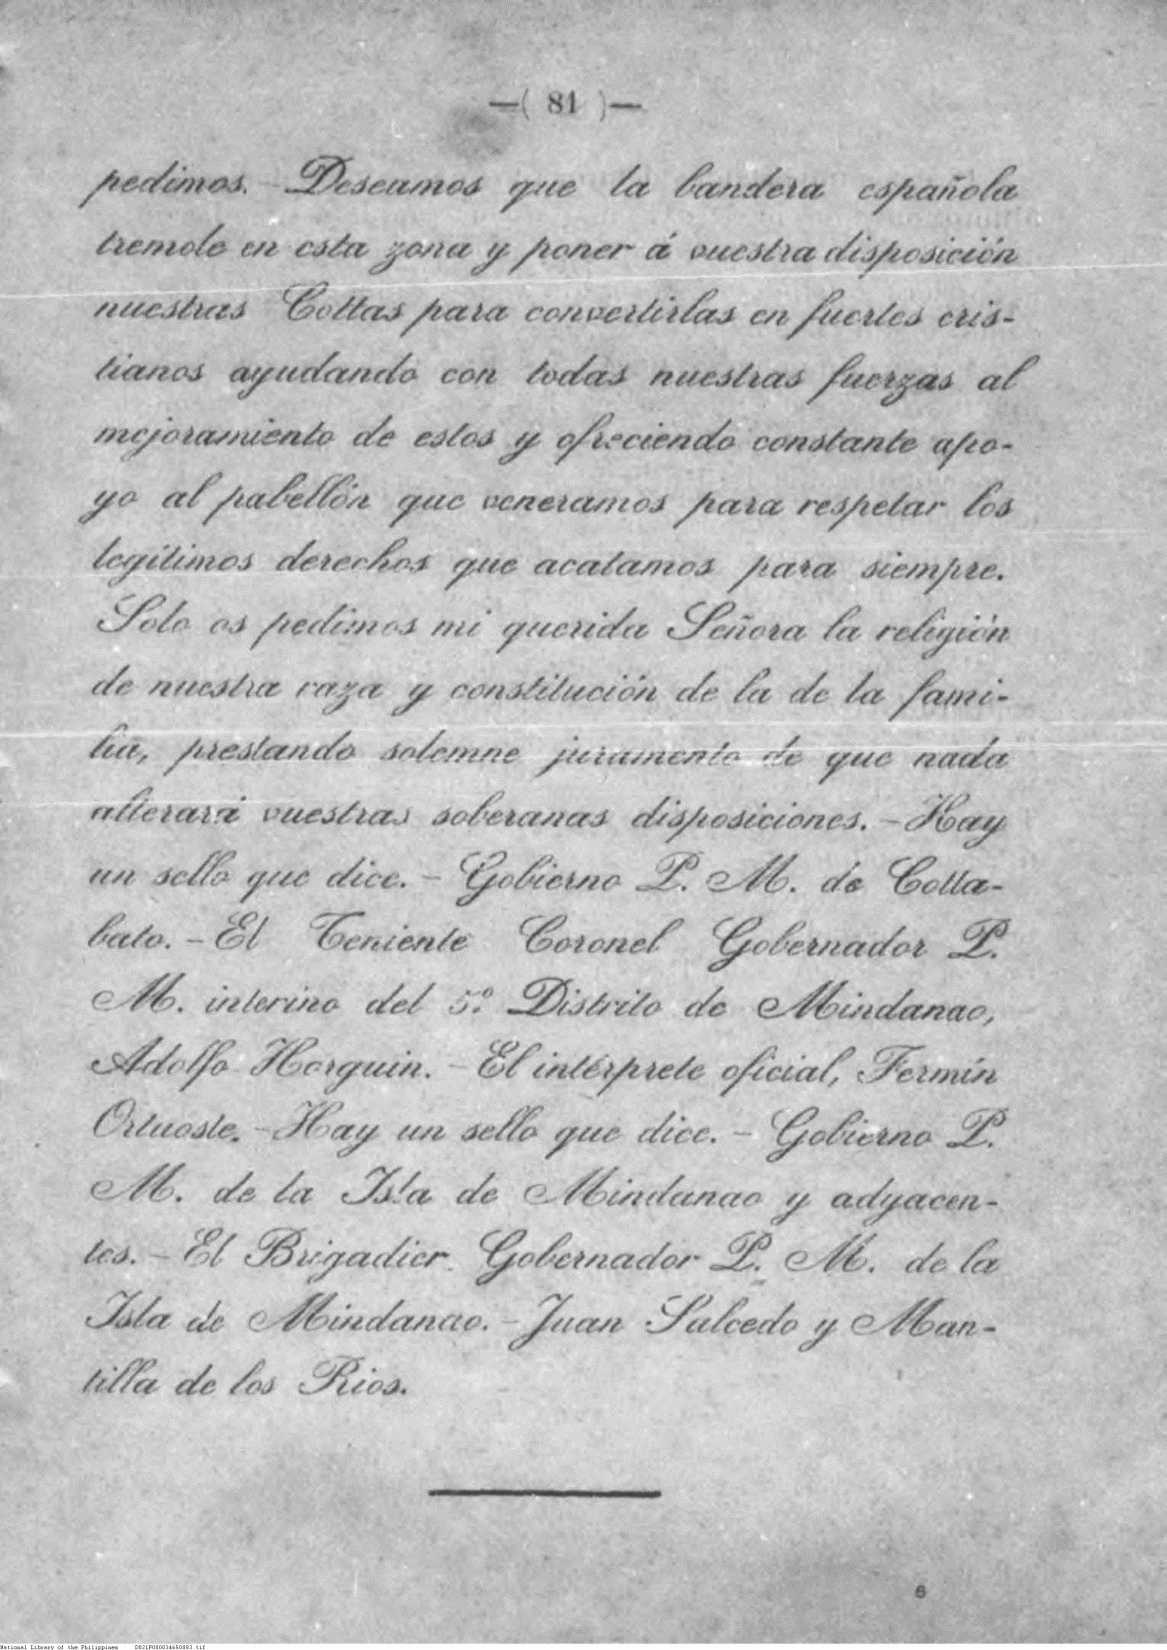 —( 81 )—
pedimos.—Deseamos que la bandera española
tremole en esta zona y poner á vuestra disposición
nuestras Cottas para convertirlas en fuertes cris-
tianos ayudando con todas nuestras fuerzas al
mejoramiento de estos y ofreciendo constante apo-
yo al pabellón que veneramos para respetar los
legítimos derechos que acatamos para siempre.
Solo os pedimos mi querida Señora la religión
de nuestra raza y constitución de la de la fami-
lia, prestando solemne juramento de que nada
alterará vuestras soberanas disposiciones.—Hay
un sello que dice.—Gobierno P. M. de Cotta-
bato.—El Teniente Coronel Gobernador P.
M. interino del 5.º Distrito de Mindanao,
Adolfo Horguin.—El intérprete oficial, Fermín
Ortuoste.—Hay un sello que dice.—Gobierno P.
M. de la Isla de Mindanao y adyacen-
tes.—El Brigadier Gobernador P. M. de la
Isla de Mindanao.—Juan Salcedo y Man-
tilla de los Rios.
6
National Library of the Philippines D021F000034650093.tif